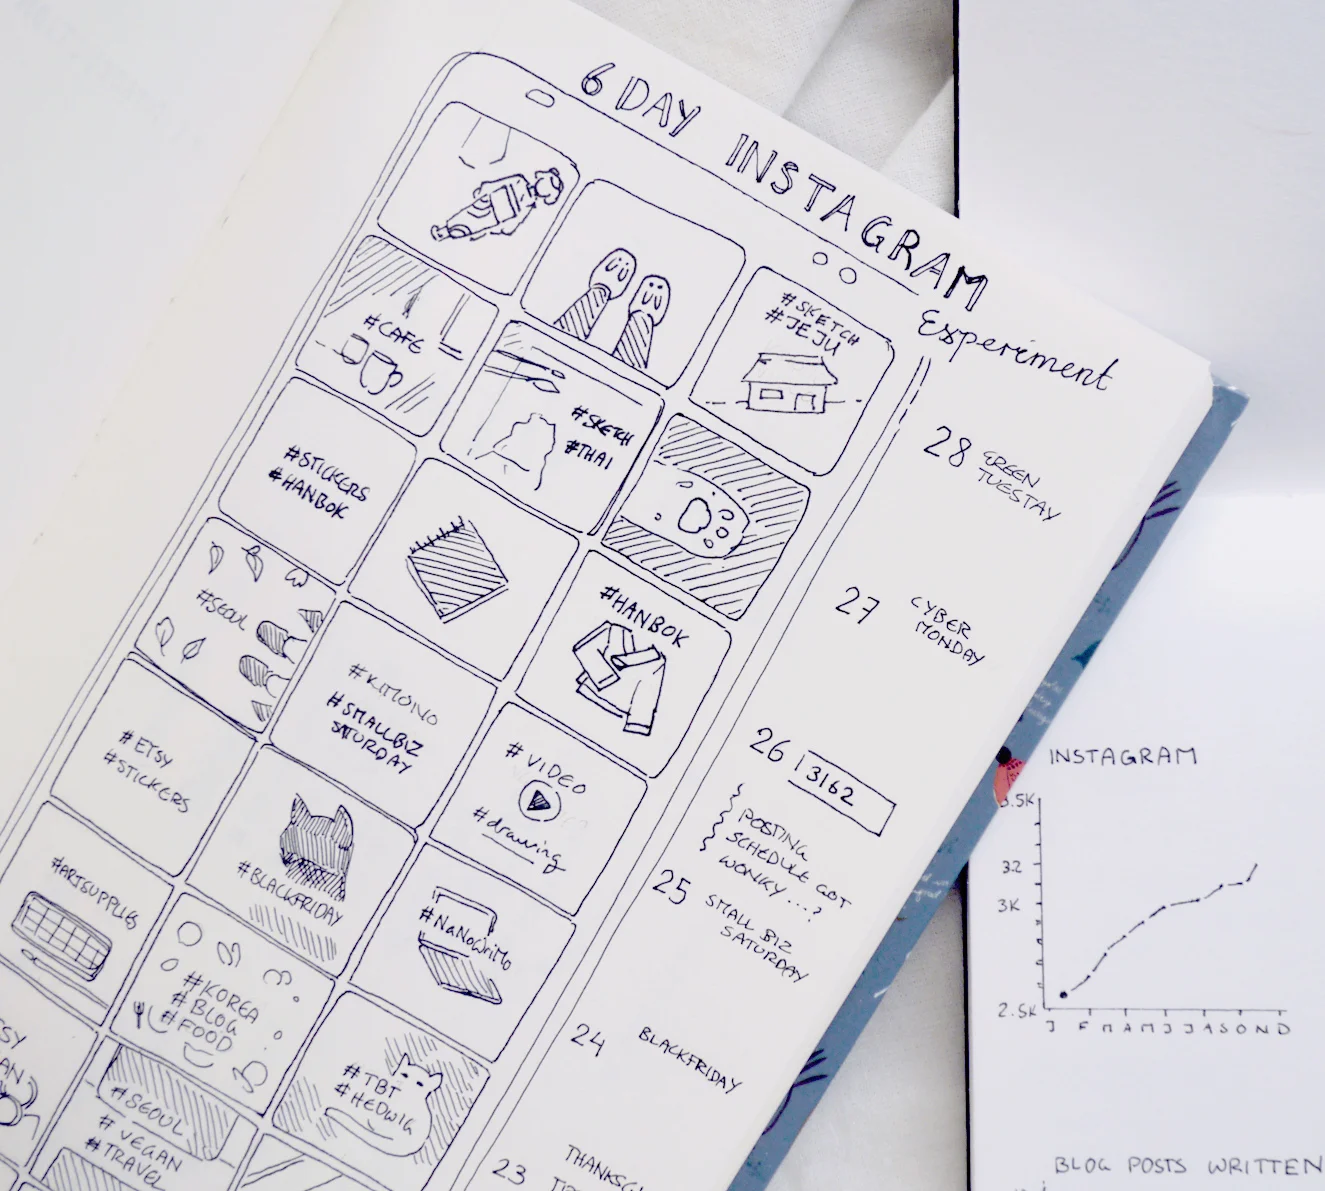 6 DAY INSTAGRAM
Experiment
#SKETCH
#JEJU
#CAFE
#SKETCH
#THAI
#STICKERS
#HANBOK
#HANBOK
#SEOUL
#KIMONO
#SMALLBIZ
SATURDAY
#VIDEO
#drawing
#ETSY
#STICKERS
#BLACKFRIDAY
#NaNoWriMo
#ARTSUPPLIES
#KOREA
#BLOG
#FOOD
#TBT
#HEDWIG
#SEOUL
#VEGAN
#TRAVEL
28 GREEN
TUESTAY
27 CYBER
MONDAY
26 3162
POSTING
SCHEDULE GOT
WONKY ...?
25 SMALL BIZ
SATURDAY
24 BLACKFRIDAY
23
INSTAGRAM
3.5K
32
3K
2.5K
J F M A M J J A S O N D
BLOG POSTS WRITTEN